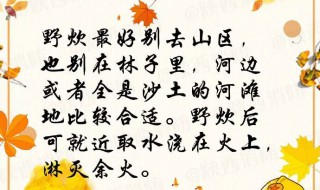 野炊最好别去山区，
也别在林子里，河边
或者全是沙土的河滩
地比较合适。野炊后
可就近取水浇在火上，
淋灭余火。